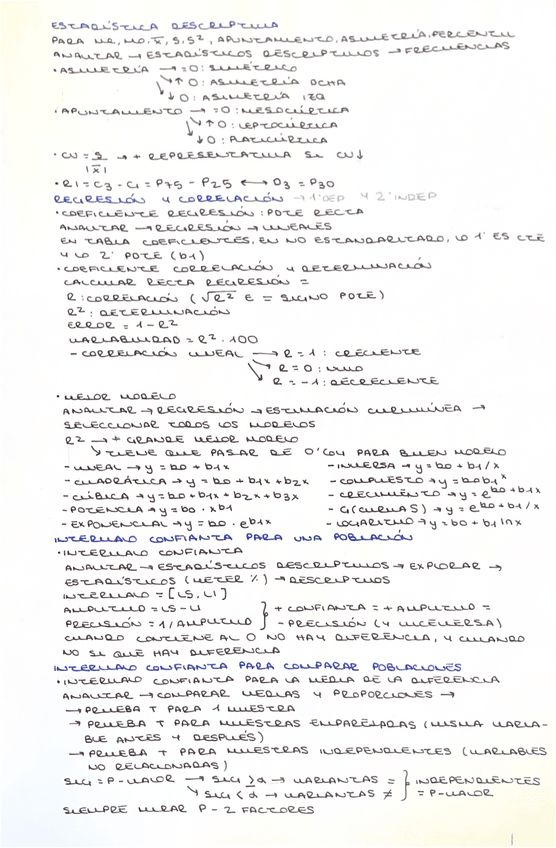 ESTADÍSTICA DESCRIPTIVA
PARA ME, MO, x̄, S, S², APUNTAMIENTO, ASIMETRÍA, PERCENTIL
ANALIZAR → ESTADÍSTICOS DESCRIPTIVOS → FRECUENCIAS
· ASIMETRÍA → =0: SIMÉTRICO
↑0: ASIMETRÍA DCHA
↓0: ASIMETRÍA IZQ
· APUNTAMIENTO → =0: MESOCÚRTICA
↑0: LEPTOCÚRTICA
↓0: PLATICÚRTICA
· CV = S/|x̄| → + REPRESENTATIVA SI CV↓
· RI = C3 - C1 = P75 - P25 ⟷ D3 = P30
REGRESIÓN Y CORRELACIÓN → 1º DEP Y 2º INDEP
· COEFICIENTE REGRESIÓN: PDTE RECTA
ANALIZAR → REGRESIÓN → LINEALES
EN TABLA COEFICIENTES, EN NO ESTANDARIZADO, LO 1º ES CTE
Y LO 2º PDTE (b1)
· COEFICIENTE CORRELACIÓN Y DETERMINACIÓN
CALCULAR RECTA REGRESIÓN =
R: CORRELACIÓN (√R² E = SIGNO PDTE)
R²: DETERMINACIÓN
ERROR = 1 - R²
VARIABILIDAD = R² · 100
- CORRELACIÓN LINEAL → R = 1: CRECIENTE
R = 0: NULO
R = -1: DECRECIENTE
· MEJOR MODELO
ANALIZAR → REGRESIÓN → ESTIMACIÓN CURVILÍNEA →
SELECCIONAR TODOS LOS MODELOS
R² → + GRANDE MEJOR MODELO
TIENE QUE PASAR DE 0'604 PARA BUEN MODELO
- LINEAL → y = b0 + b1x - INVERSA → y = b0 + b1/x
- CUADRÁTICA → y = b0 + b1x + b2x - COMPUESTO → y = b0b1^x
- CÚBICA → y = b0 + b1x + b2x + b3x - CRECIMIENTO → y = e^b0 + b1x
- POTENCIA → y = b0 · xb1 - G(CURVA S) → y = e^b0 + b1/x
- EXPONENCIAL → y = b0 · e^b1x - LOGARITMO → y = b0 + b1 lnx
INTERVALO CONFIANZA PARA UNA POBLACIÓN
· INTERVALO CONFIANZA
ANALIZAR → ESTADÍSTICOS DESCRIPTIVOS → EXPLORAR →
ESTADÍSTICOS (METER %) → DESCRIPTIVOS
INTERVALO = [LS, LI]
AMPLITUD = LS - LI } + CONFIANZA = + AMPLITUD =
PRECISIÓN = 1/AMPLITUD - PRECISIÓN (Y VICEVERSA)
CUANDO CONTIENE AL 0 NO HAY DIFERENCIA, Y CUANDO
NO SI QUE HAY DIFERENCIA
INTERVALO CONFIANZA PARA COMPARAR POBLACIONES
· INTERVALO CONFIANZA PARA LA MEDIA DE LA DIFERENCIA
ANALIZAR → COMPARAR MEDIAS Y PROPORCIONES →
→ PRUEBA T PARA 1 MUESTRA
→ PRUEBA T PARA MUESTRAS EMPAREJADAS (MISMA VARIA-
BLE ANTES Y DESPUÉS)
→ PRUEBA T PARA MUESTRAS INDEPENDIENTES (VARIABLES
NO RELACIONADAS)
SIG = P-VALOR → SIG ≥ α → VARIANZAS = } INDEPENDIENTES
SIG < α → VARIANZAS ≠ = P-VALOR
SIEMPRE MIRAR P - 2 FACTORES